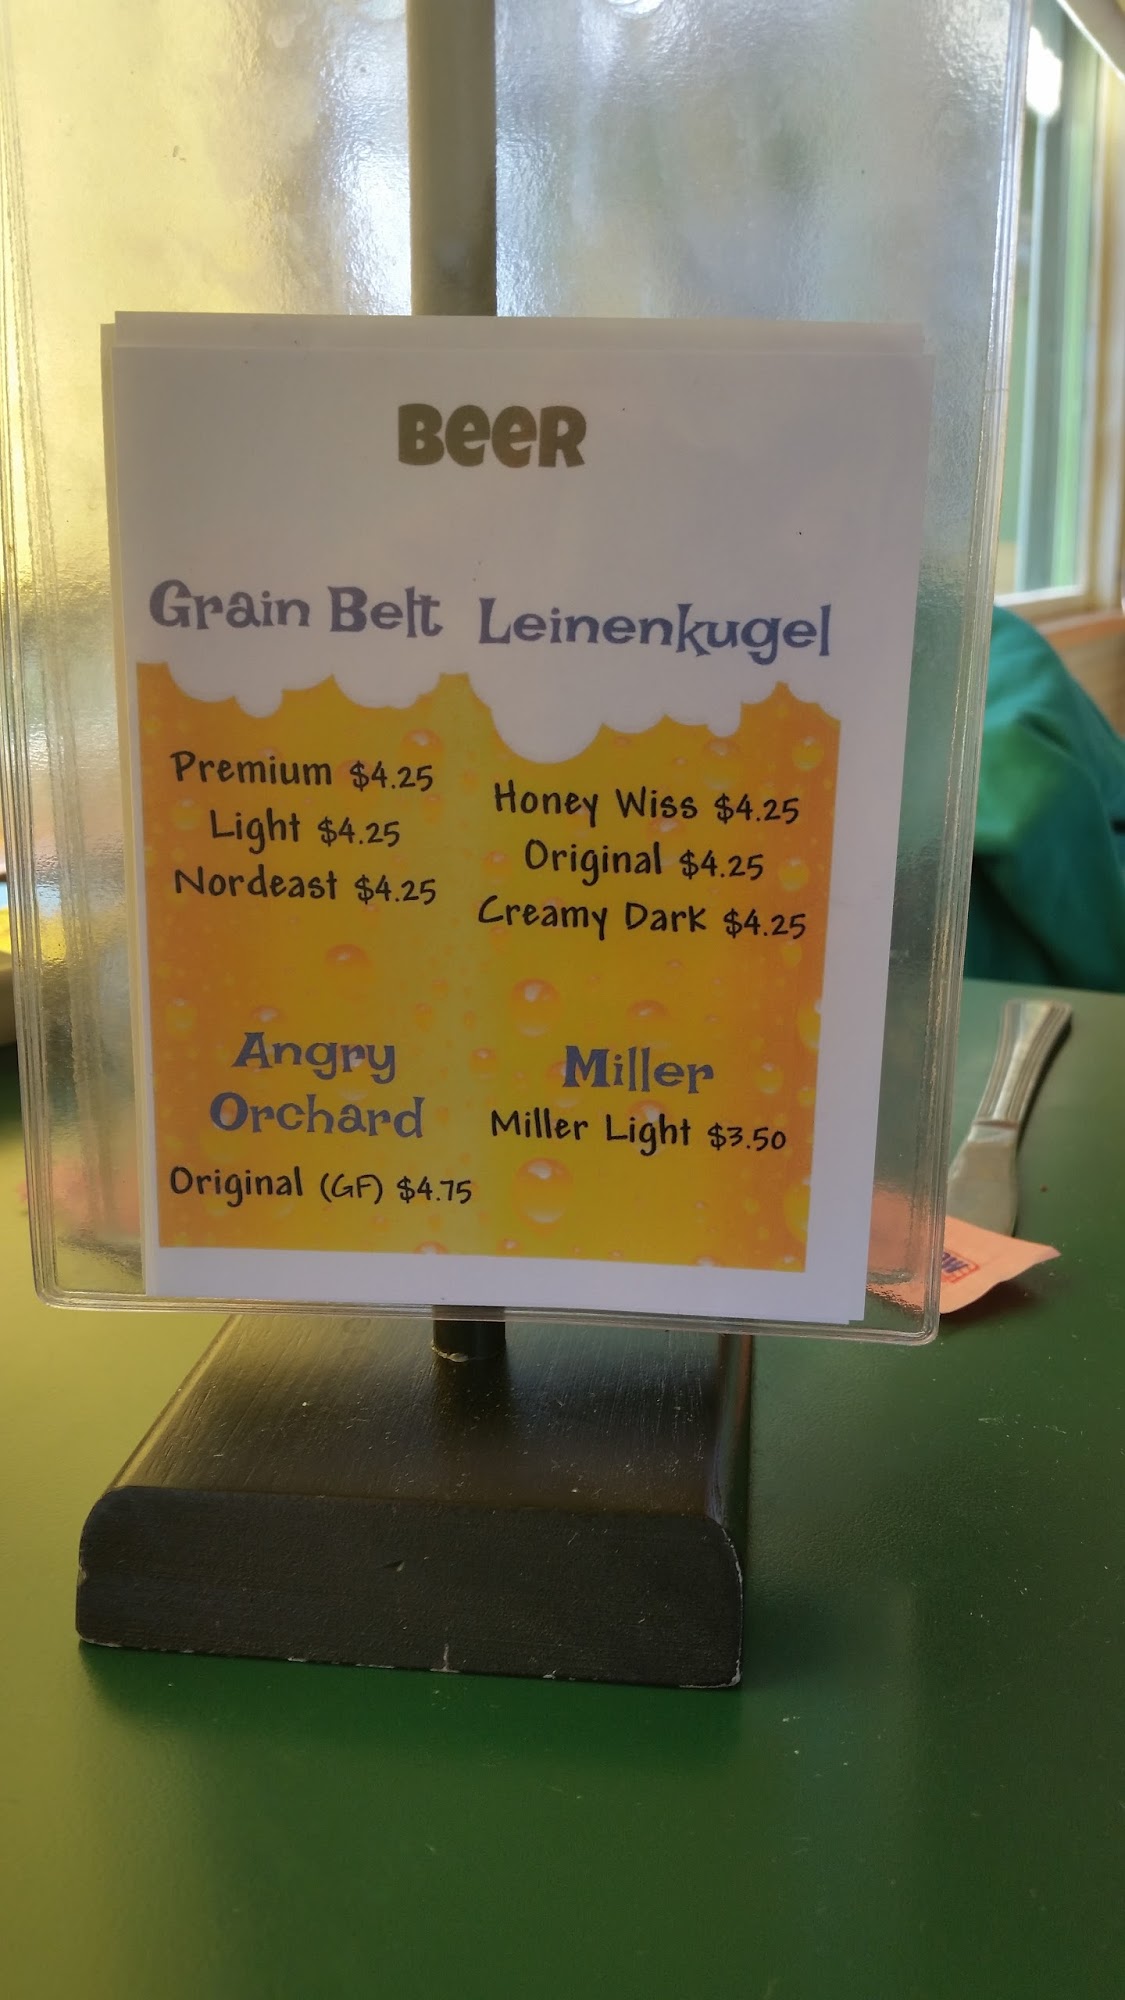 BeeR
Grain Belt
Premium $4.25
Light $4.25
Nordeast $4.25
Leinenkugel
Honey Wiss $4.25
Original $4.25
Creamy Dark $4.25
Angry
Orchard
Original (GF) $4.75
Miller
Miller Light $3.50